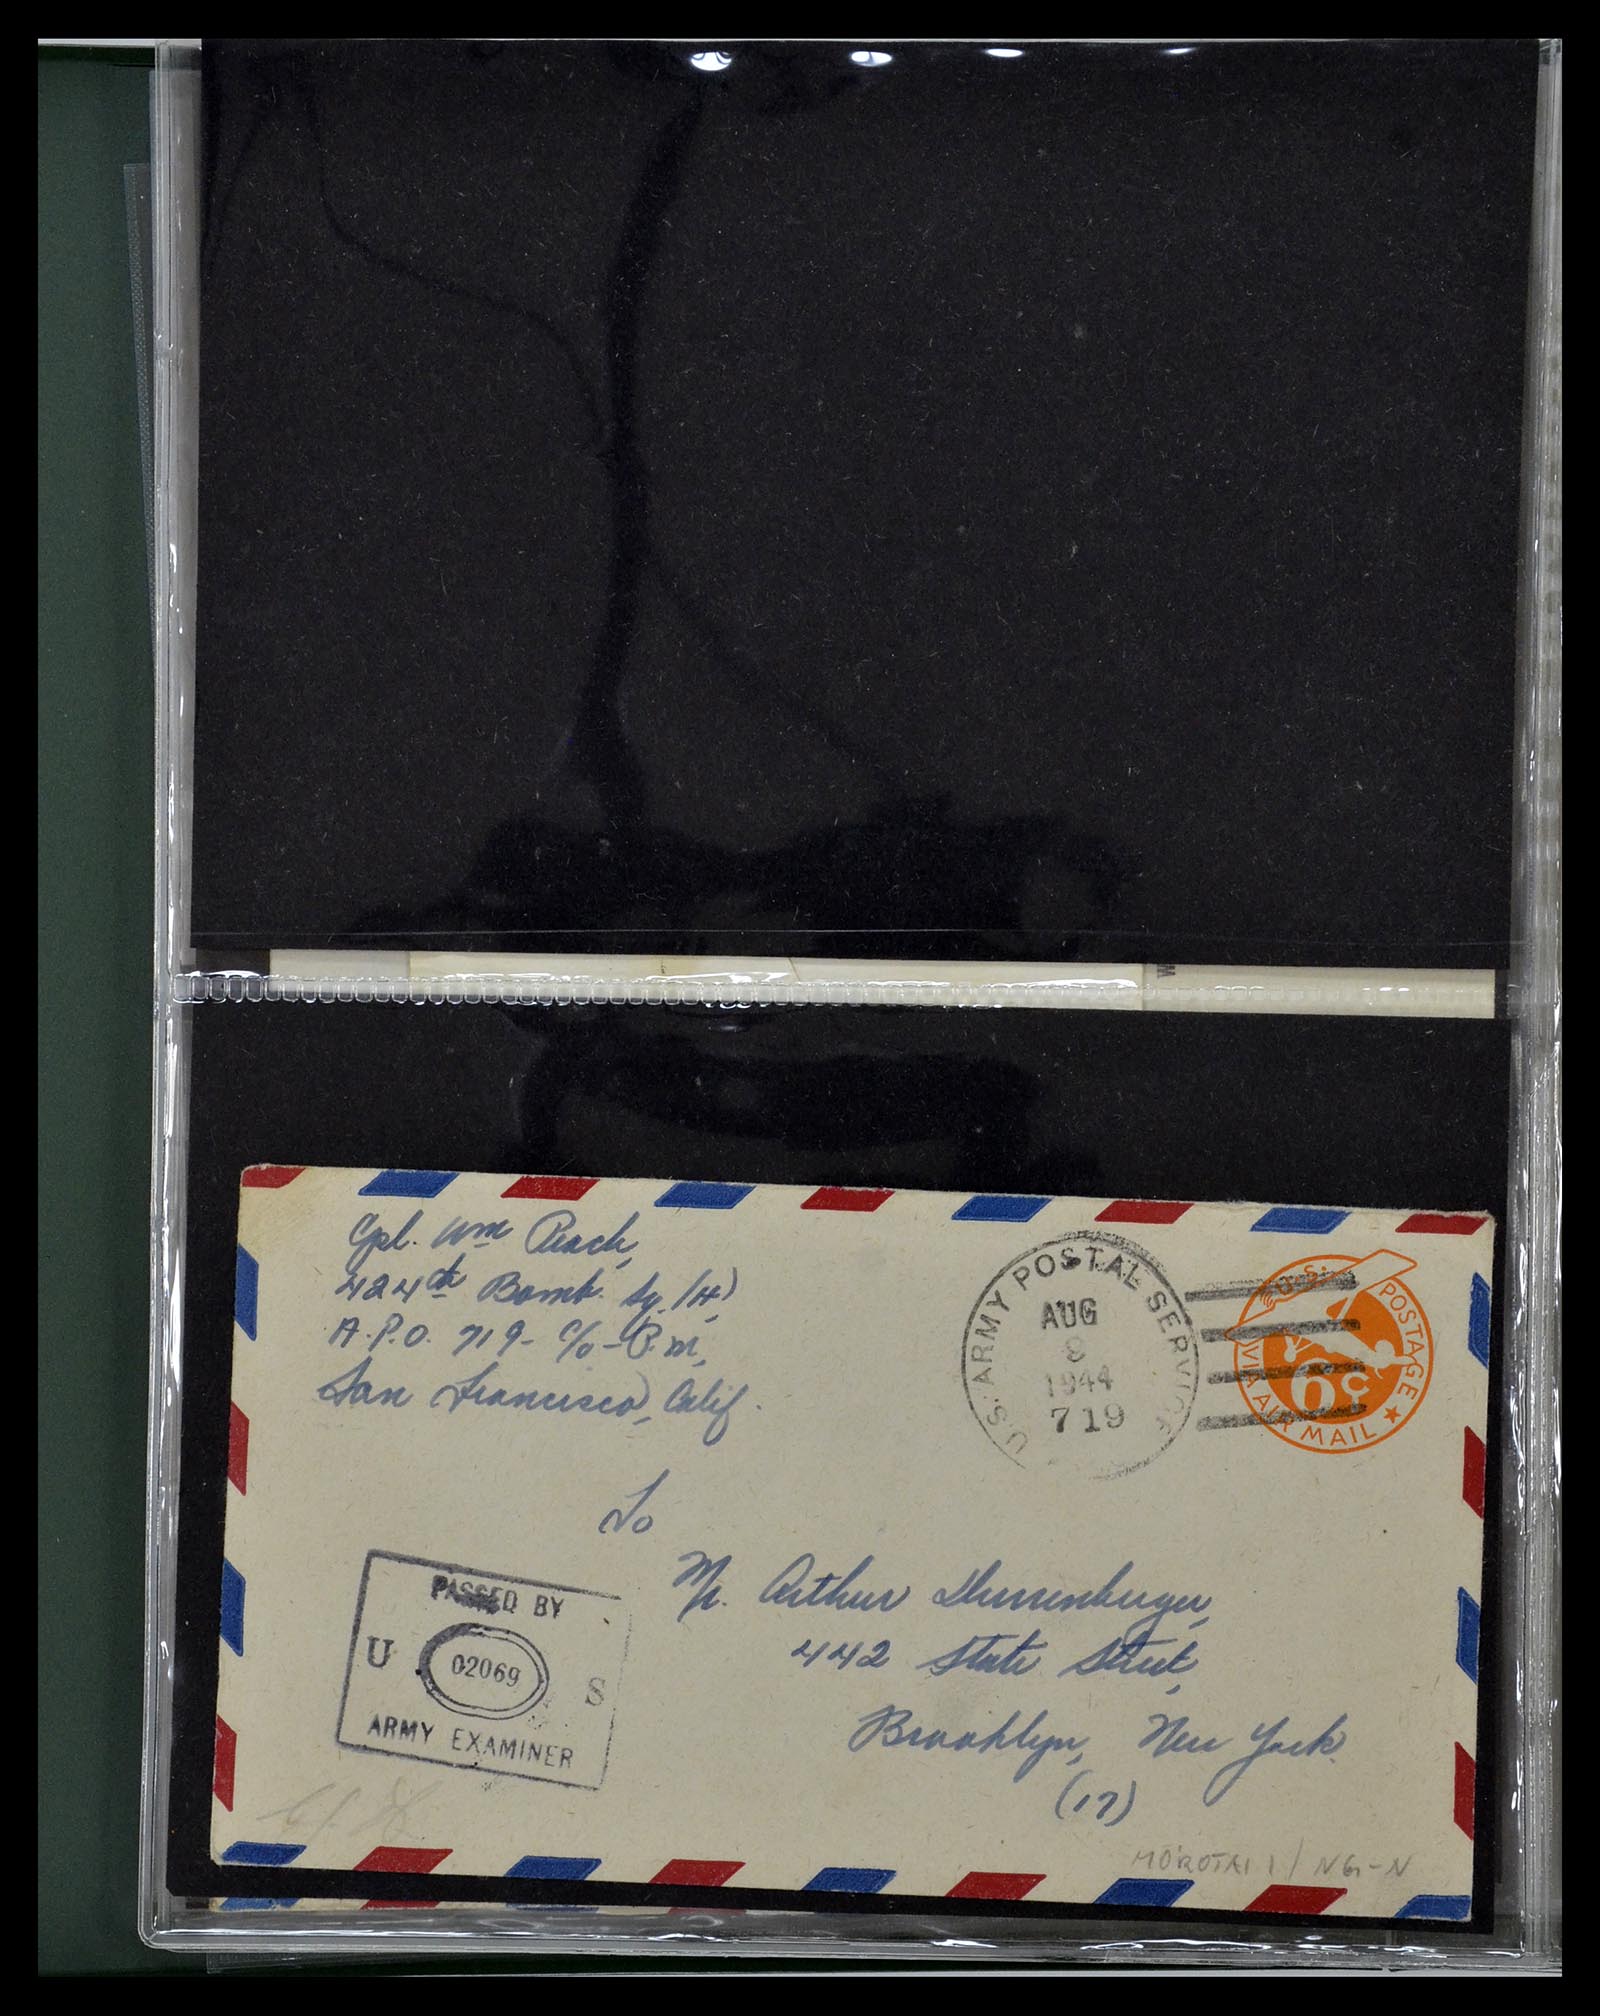 W
Cpl. Wm Peach,
424th Bomb. Sq. (H)
A.P.O. 719 - c/o - P.M.,
San Francisco, Calif.
U.S. ARMY POSTAL SERVICE
AUG
8
1944
719
U.S. POSTAGE
VIA AIR MAIL
6¢
To
Mr. Arthur
442 State Street,
Brooklyn, New York
(17)
PASSED BY
U 02069 S
ARMY EXAMINER
MOROTAI 1 / NG-N